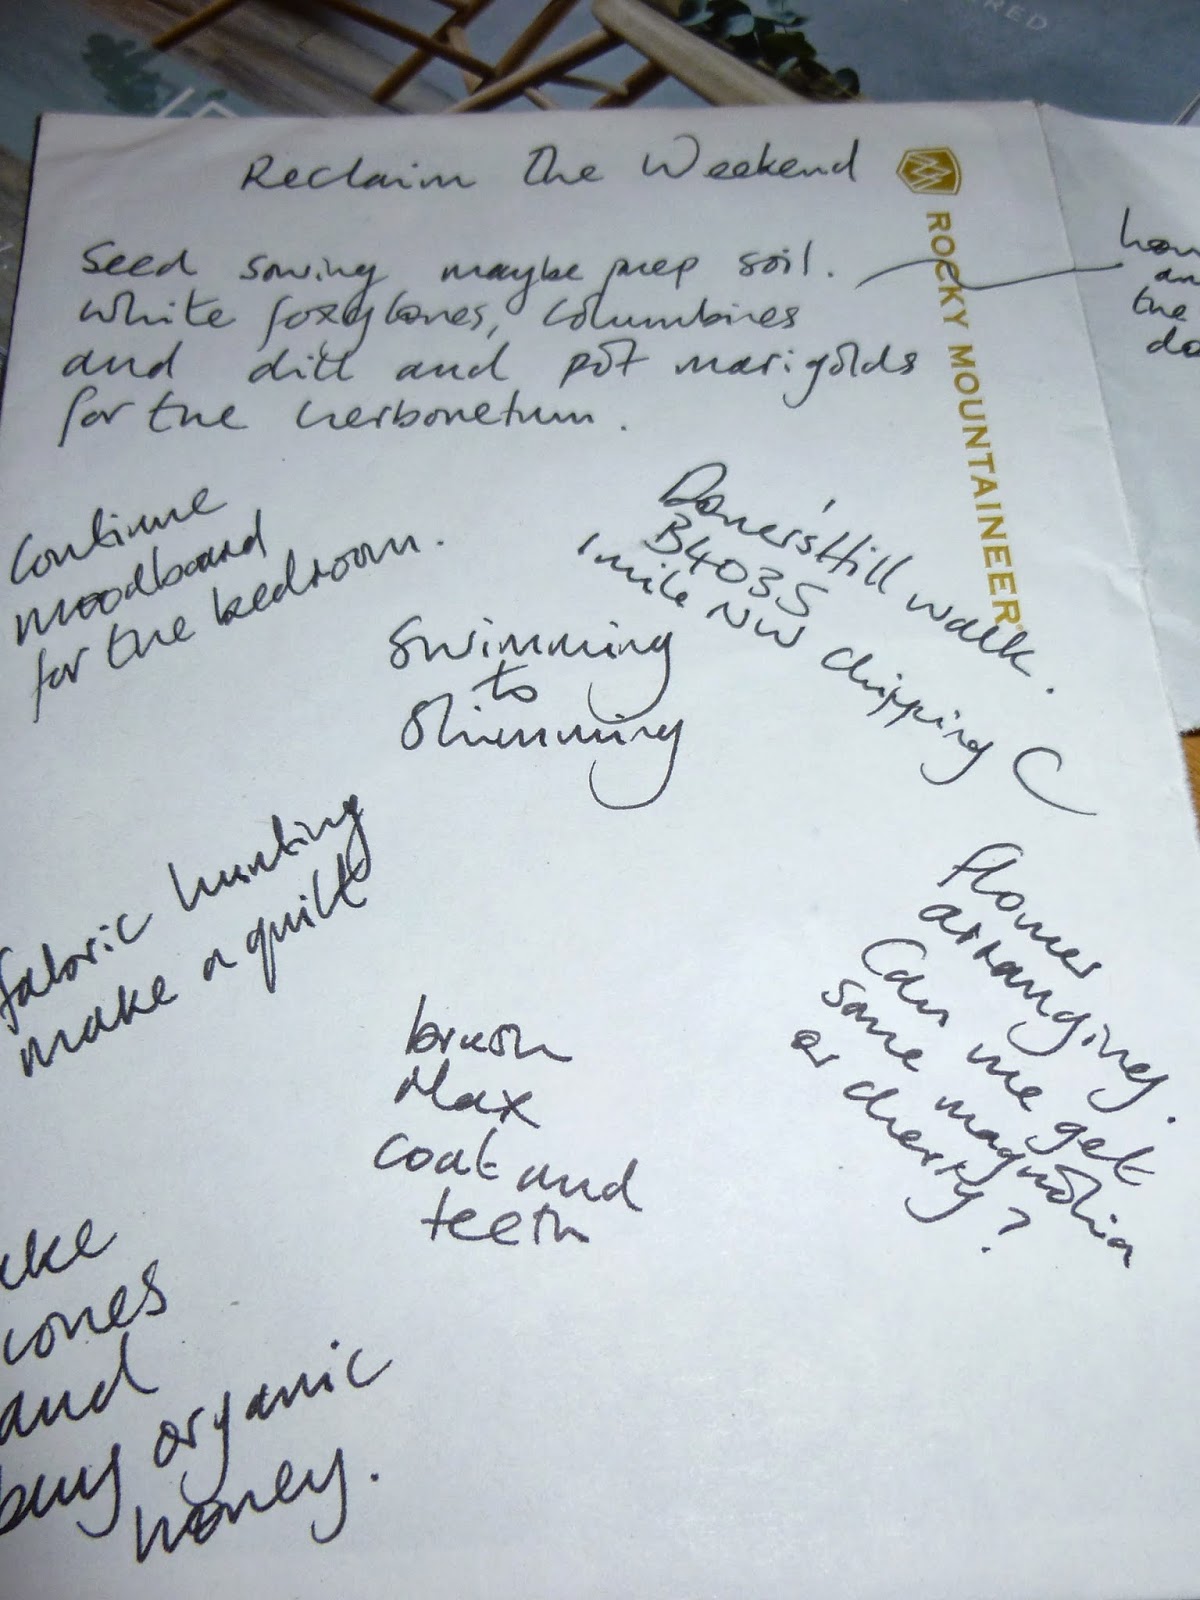 RED
Reclaim The Weekend
ROCKY MOUNTAINEER
Seed sowing maybe prep soil.
White foxgloves, columbines
and dill and pot marigolds
for the herbonetum.
the
Continue
moodboard
for the bedroom.
Dover's Hill walk.
B4035
1 mile NW chipping C
Swimming
to
Slimming
fabric hunting
make a quilt
flower
arranging.
Can we get
some magnolia
or cherry?
brush
Max
coat and
teeth
and
buy organic
honey.